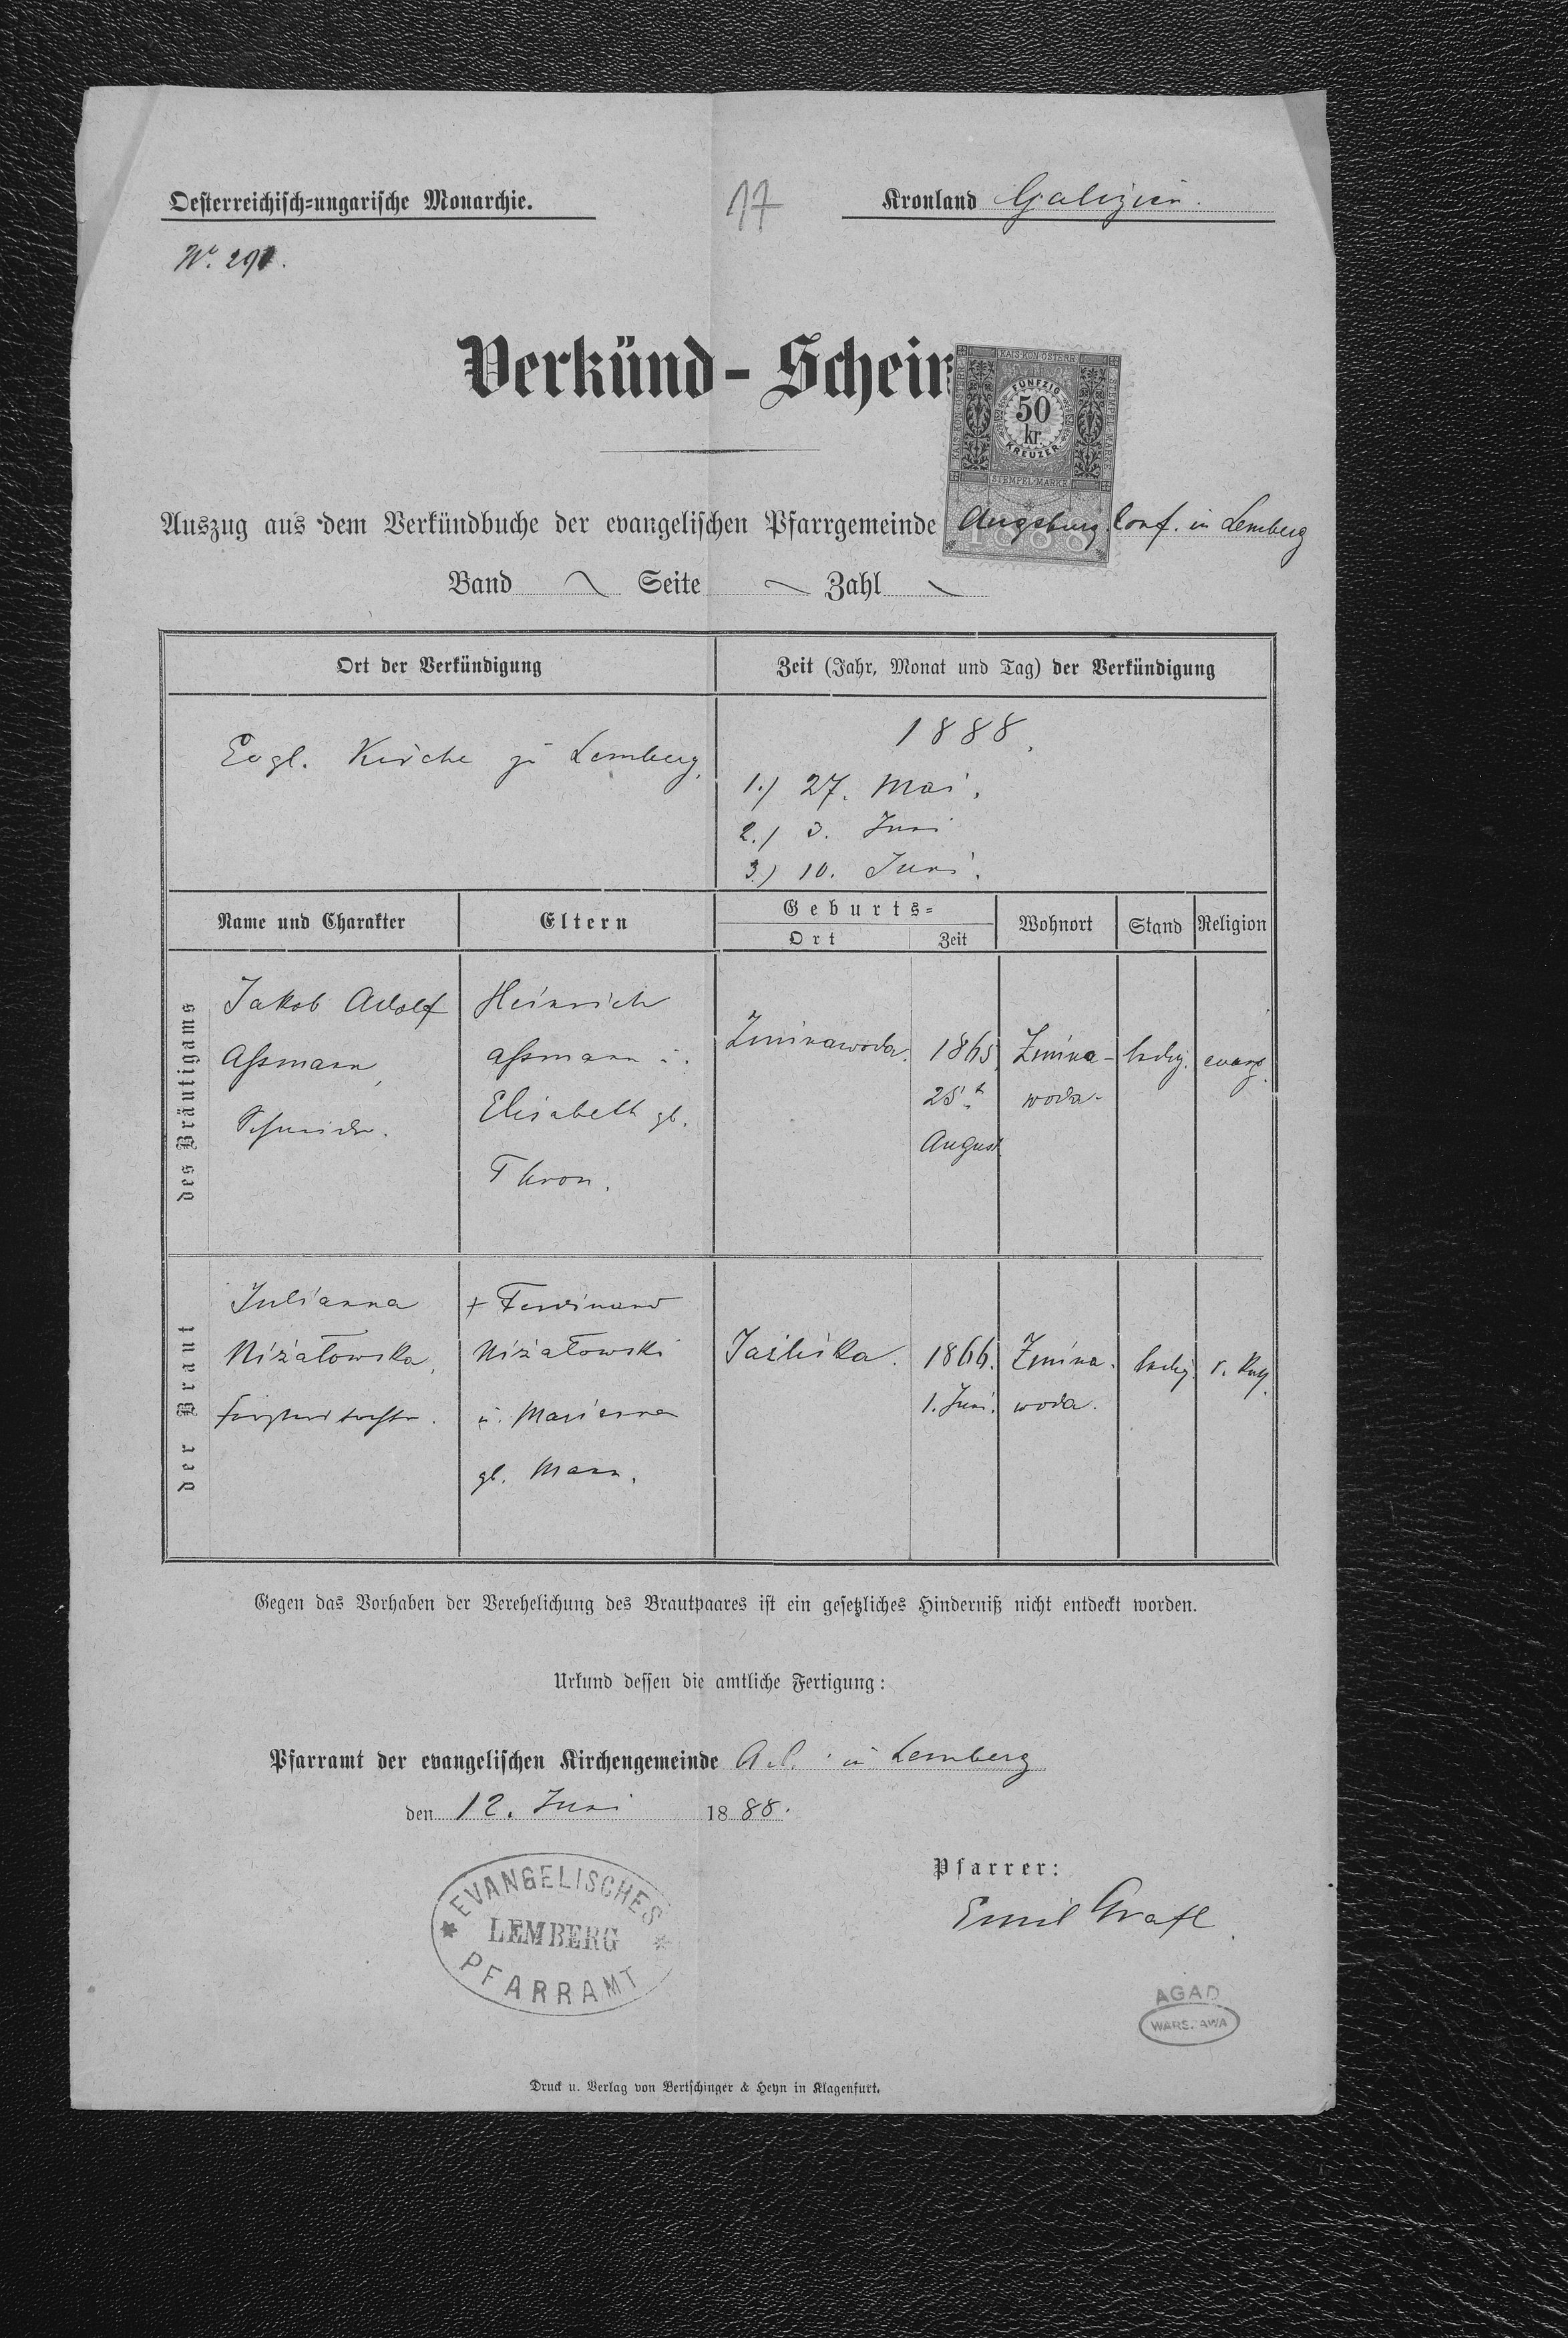 Oesterreichisch-ungarische Monarchie.
17
Kronland Galizien.
Nr. 291.
Verkünd-Schein
KAIS. KÖN. ÖSTERR.
STEMPEL-MARKE
FÜNFZIG
50
kr.
KREUZER
STEMPEL-MARKE
1888
Auszug aus dem Verkündbuche der evangelischen Pfarrgemeinde Augsburg. Conf. in Lemberg
Band Seite Zahl
Ort der Verkündigung
Zeit (Jahr, Monat und Tag) der Verkündigung
Evgl. Kirche zu Lemberg,
1888,
1.) 27. Mai.
2.) 3. Juni
3.) 10. Juni.
Name und Charakter
Eltern
Geburts-
Ort
Zeit
Wohnort
Stand
Religion
des Bräutigams
Jakob Adolf
Aßmann,
Schneider.
Heinrich
Aßmann u.
Elisabeth gb.
Thron.
Zminawoda.
1865,
25t
August
Zmina-
woda.
ledig.
evang.
der Braut
Julianna
Niżałowska,
+ Ferdinand
Niżałowski
u. Marianna
gb. Mann.
Jaśliska.
1866.
1. Juni.
Zmina.
woda.
ledig.
r. kath.
Gegen das Vorhaben der Verehelichung des Brautpaares ist ein gesetzliches Hinderniß nicht entdeckt worden.
Urkund dessen die amtliche Fertigung:
Pfarramt der evangelischen Kirchengemeinde A. C. in Lemberg
den 12. Juni 1888.
EVANGELISCHES
LEMBERG
PFARRAMT
Pfarrer:
Emil Grafl
AGAD
WARSZAWA
Druck u. Verlag von Bertschinger & Heyn in Klagenfurt.